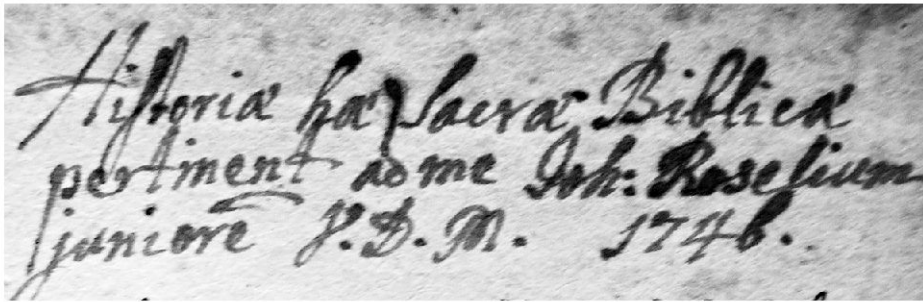 Historiæ hæ Sacræ Biblicæ
pertinent ad me Joh: Roselium
juniorē
J. D. M. 1746.